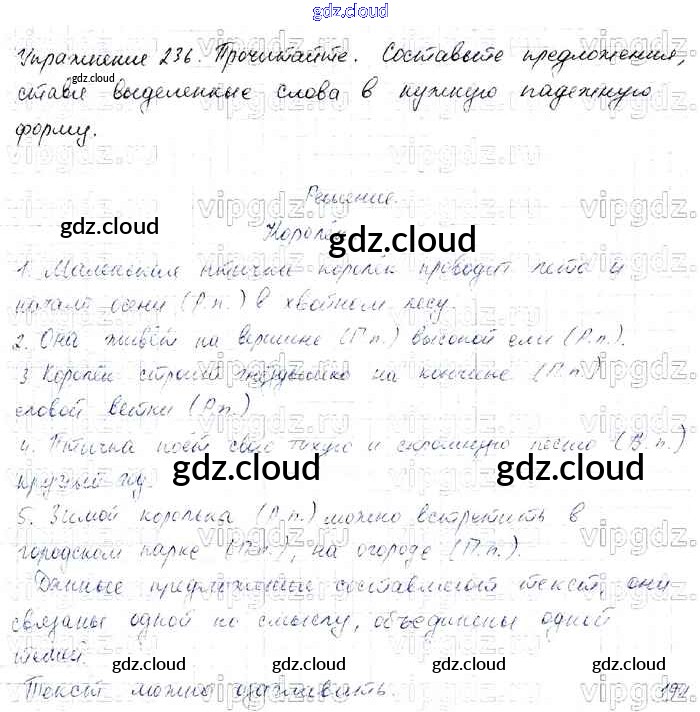 gdz.cloud
Упражнение 236. Прочитайте. Составьте предложения,
gdz.cloud
ставя выделенные слова в нужную падежную
форму.
Решение.
gdz.cloud
Королёк
gdz.cloud
1. Маленькая птичка королёк проводит лето и
начало осени (Р.п.) в хвойном лесу.
2. Она живёт на вершине (П.п.) высокой ели (Р.п.).
gdz.cloud
3 Королёк строит гнёздышко на кончике (П.п.)
еловой ветки (Р.п.)
4. Птичка поёт свою тихую и скромную песню (В.п.)
gdz.cloud gdz.cloud
круглый год.
5. Зимой королька (Р.п.) можно встретить в
городском парке (П.п.), на огороде (П.п.).
Данные предложения составляют текст, они
связаны одной по смыслу, объединены одной
темой.
gdz.cloud gdz.cloud gdz.cloud
Текст можно озаглавить.